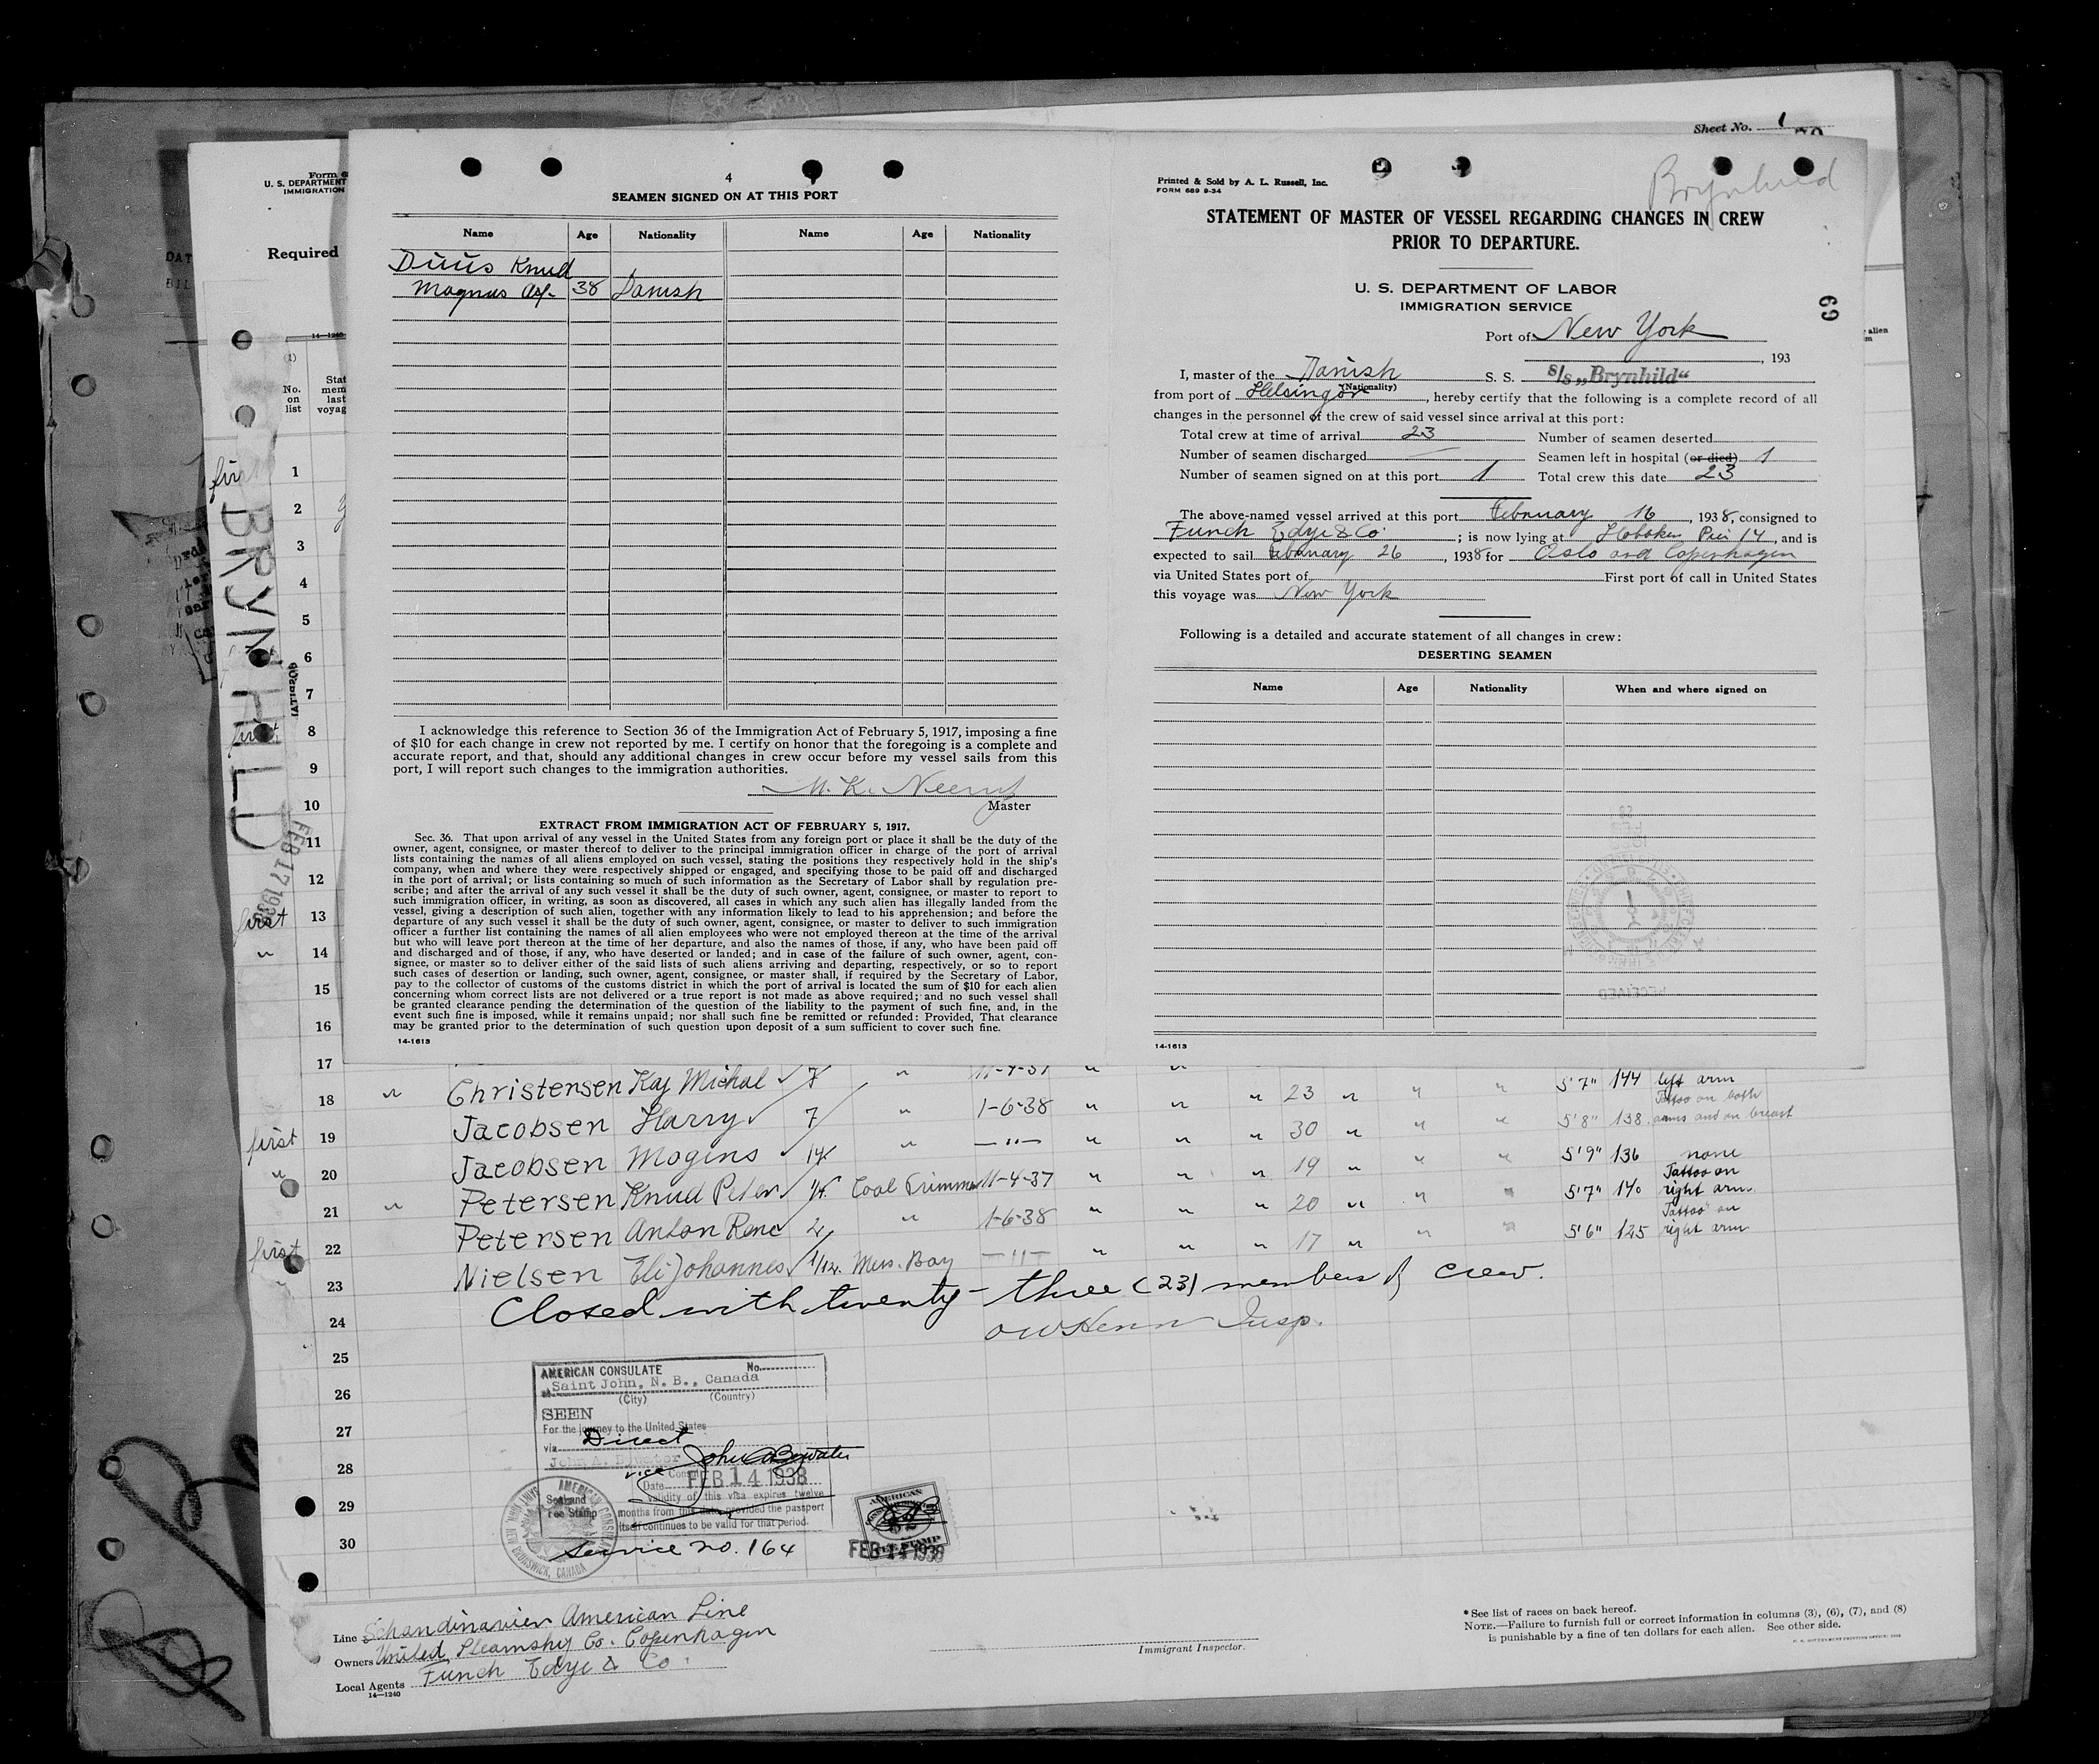 Sheet No. 1
Form 6
U. S. DEPARTMENT
IMMIGRATION
Required
14—1240
(1)
No. on list
Stat
mem
last
voyag
BRYNHILD
FEB 17 1938
4
SEAMEN SIGNED ON AT THIS PORT
Name Age Nationality Name Age Nationality
Düüs Knud
Magnus 38 Danish
I acknowledge this reference to Section 36 of the Immigration Act of February 5, 1917, imposing a fine
of $10 for each change in crew not reported by me. I certify on honor that the foregoing is a complete and
accurate report, and that, should any additional changes in crew occur before my vessel sails from this
port, I will report such changes to the immigration authorities.
M. K.
Master
EXTRACT FROM IMMIGRATION ACT OF FEBRUARY 5, 1917.
Sec. 36. That upon arrival of any vessel in the United States from any foreign port or place it shall be the duty of the
owner, agent, consignee, or master thereof to deliver to the principal immigration officer in charge of the port of arrival
lists containing the names of all aliens employed on such vessel, stating the positions they respectively hold in the ship's
company, when and where they were respectively shipped or engaged, and specifying those to be paid off and discharged
in the port of arrival; or lists containing so much of such information as the Secretary of Labor shall by regulation pre-
scribe; and after the arrival of any such vessel it shall be the duty of such owner, agent, consignee, or master to report to
such immigration officer, in writing, as soon as discovered, all cases in which any such alien has illegally landed from the
vessel, giving a description of such alien, together with any information likely to lead to his apprehension; and before the
departure of any such vessel it shall be the duty of such owner, agent, consignee, or master to deliver to such immigration
officer a further list containing the names of all alien employees who were not employed thereon at the time of the arrival
but who will leave port thereon at the time of her departure, and also the names of those, if any, who have been paid off
and discharged and of those, if any, who have deserted or landed; and in case of the failure of such owner, agent, con-
signee, or master so to deliver either of the said lists of such aliens arriving and departing, respectively, or so to report
such cases of desertion or landing, such owner, agent, consignee, or master shall, if required by the Secretary of Labor,
pay to the collector of customs of the customs district in which the port of arrival is located the sum of $10 for each alien
concerning whom correct lists are not delivered or a true report is not made as above required; and no such vessel shall
be granted clearance pending the determination of the question of the liability to the payment of such fine, and, in the
event such fine is imposed, while it remains unpaid; nor shall such fine be remitted or refunded: Provided, That clearance
may be granted prior to the determination of such question upon deposit of a sum sufficient to cover such fine.
14-1613
Brynhild
Printed & Sold by A. L. Russell, Inc.
FORM 689 9-34
STATEMENT OF MASTER OF VESSEL REGARDING CHANGES IN CREW
PRIOR TO DEPARTURE.
U. S. DEPARTMENT OF LABOR
IMMIGRATION SERVICE
69
Port of New York
, 193
I, master of the Danish S. S. S/s „Brynhild“
(Nationality)
from port of Helsingör, hereby certify that the following is a complete record of all
changes in the personnel of the crew of said vessel since arrival at this port:
Total crew at time of arrival 23 Number of seamen deserted
Number of seamen discharged — Seamen left in hospital (or died) 1
Number of seamen signed on at this port 1 Total crew this date 23
The above-named vessel arrived at this port February 16, 1938, consigned to
Funch Edye & Co; is now lying at Hoboken Pier 14, and is
expected to sail February 26, 1938 for Oslo and Copenhagen
via United States port of First port of call in United States
this voyage was New York
Following is a detailed and accurate statement of all changes in crew:
DESERTING SEAMEN
Name Age Nationality When and where signed on
RECEIVED
14-1613
first 1
2
3
4
5
6
7
first 8
9
10
11
12
first 13
" 14
15
16
17
18 " Christensen Kaj Michal 7 " 11-4-37 " " " 23 " " " 5'7" 144 left arm
first 19 Jacobsen Harry 7 " 1-6-38 " " " 30 " " " 5'8" 138 Tattoo on both arms and on breast
" 20 Jacobsen Mogins 1/4 " —"— " " " 19 " " " 5'9" 136 none
21 " Petersen Knud Peter 1/4 Coal Trimmer 11-4-37 " " " 20 " " " 5'7" 140 Tattoo on right arm
first 22 Petersen Anton Rene 2 " 1-6-38 " " " 17 " " " 5'6" 125 Tattoo on right arm
" 23 Nielsen Eli Johannes 1/12 Mess. Boy —"—
24 Closed with twenty-three (23) members of crew.
Insp.
25
26
27
28
29
30
AMERICAN CONSULATE No.
at Saint John, N. B., Canada
(City) (Country)
SEEN
For the journey to the United States
via Direct
John A. Bywater
vice Consul
Date FEB 14 1938
validity of this visa expires twelve
months from this date, provided the passport
itself continues to be valid for that period.
Seal and
Fee Stamp
AMERICAN CONSULATE
SAINT JOHN, NEW BRUNSWICK, CANADA
Service no. 164
AMERICAN
$2
FEE STAMP
FEB 14 1938
Line Schandinavien American Line
Owners United Steamship Co. Copenhagen
Local Agents Funch Edye & Co.
14—1240
Immigrant Inspector.
* See list of races on back hereof.
NOTE.—Failure to furnish full or correct information in columns (3), (6), (7), and (8)
is punishable by a fine of ten dollars for each alien. See other side.